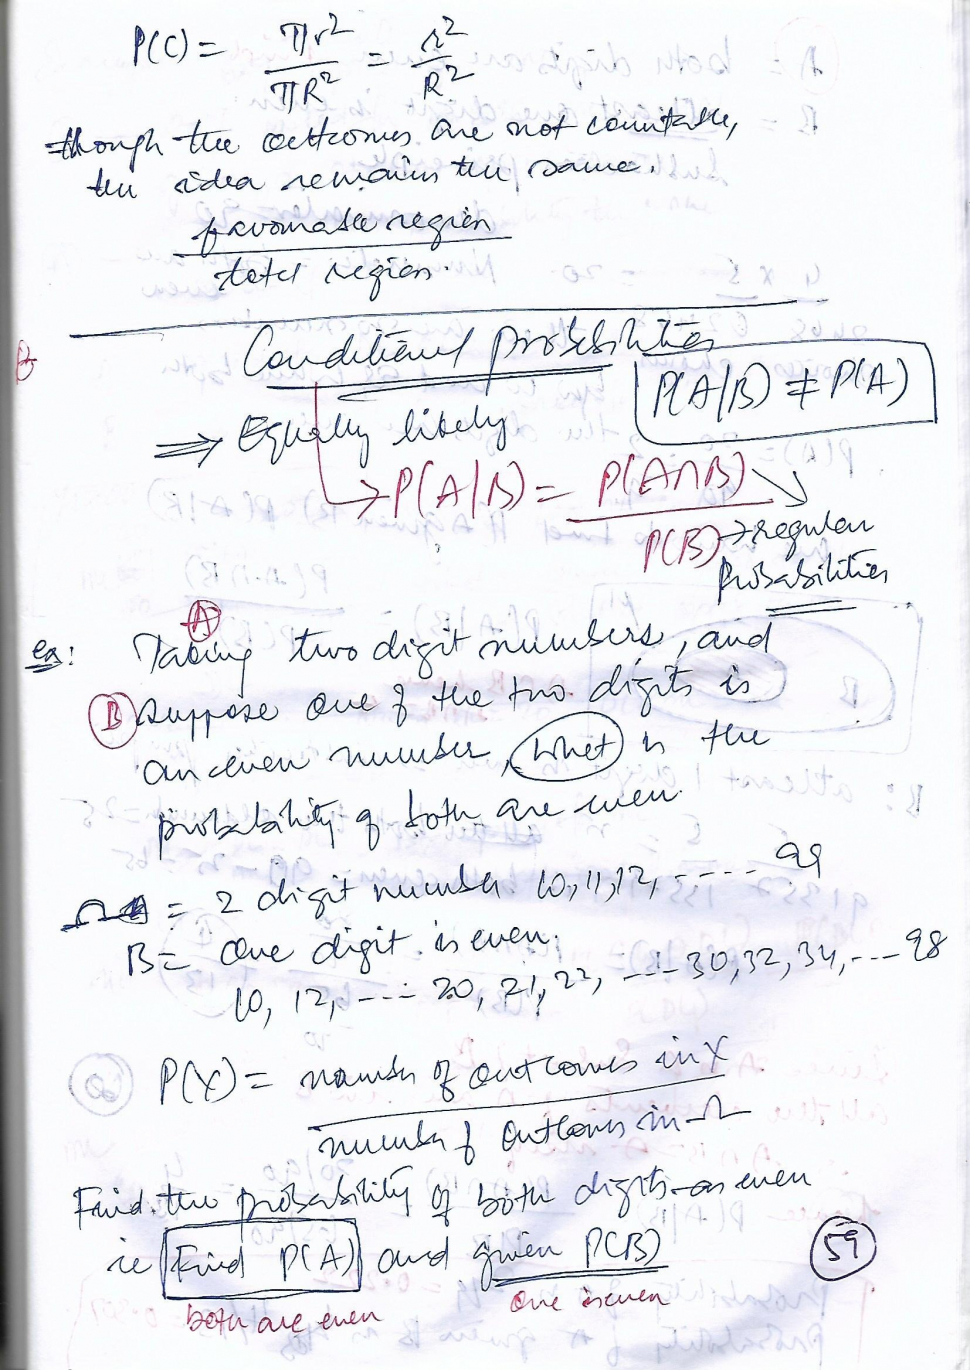 P(C) = πr² / πR² = r² / R²
though the outcomes are not countable,
the idea remains the same.
favourable region
total region.
Conditional probabilities
P(A|B) ≠ P(A)
⇒ Equally likely
→ P(A|B) = P(A∩B) / P(B) → regular
probabilities
A
ex: Taking two digit numbers, and
B suppose one of the two digits is
an even number, what is the
probability of both are even.
Ω = 2 digit number 10, 11, 12, ---- 99
B = one digit is even.
10, 12, --- 20, 21, 22, --- 30, 32, 34, --- 98
P(X) = number of outcomes in X
number of outcomes in Ω
Find the probability of both digits as even
ie Find P(A) and given P(B)
both are even one is even
59